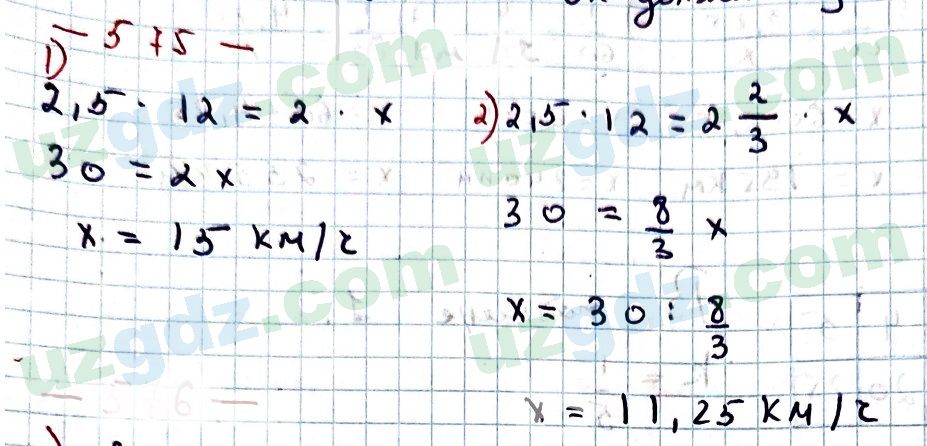 — 575 —
1)
2,5 · 12 = 2 · x
30 = 2x
x = 15 км/ч
2) 2,5 · 12 = 2 2/3 · x
30 = 8/3 x
x = 30 : 8/3
x = 11,25 км/ч
— 576 —
uzgdz.com
uzgdz.com
uzgdz.com
uzgdz.com